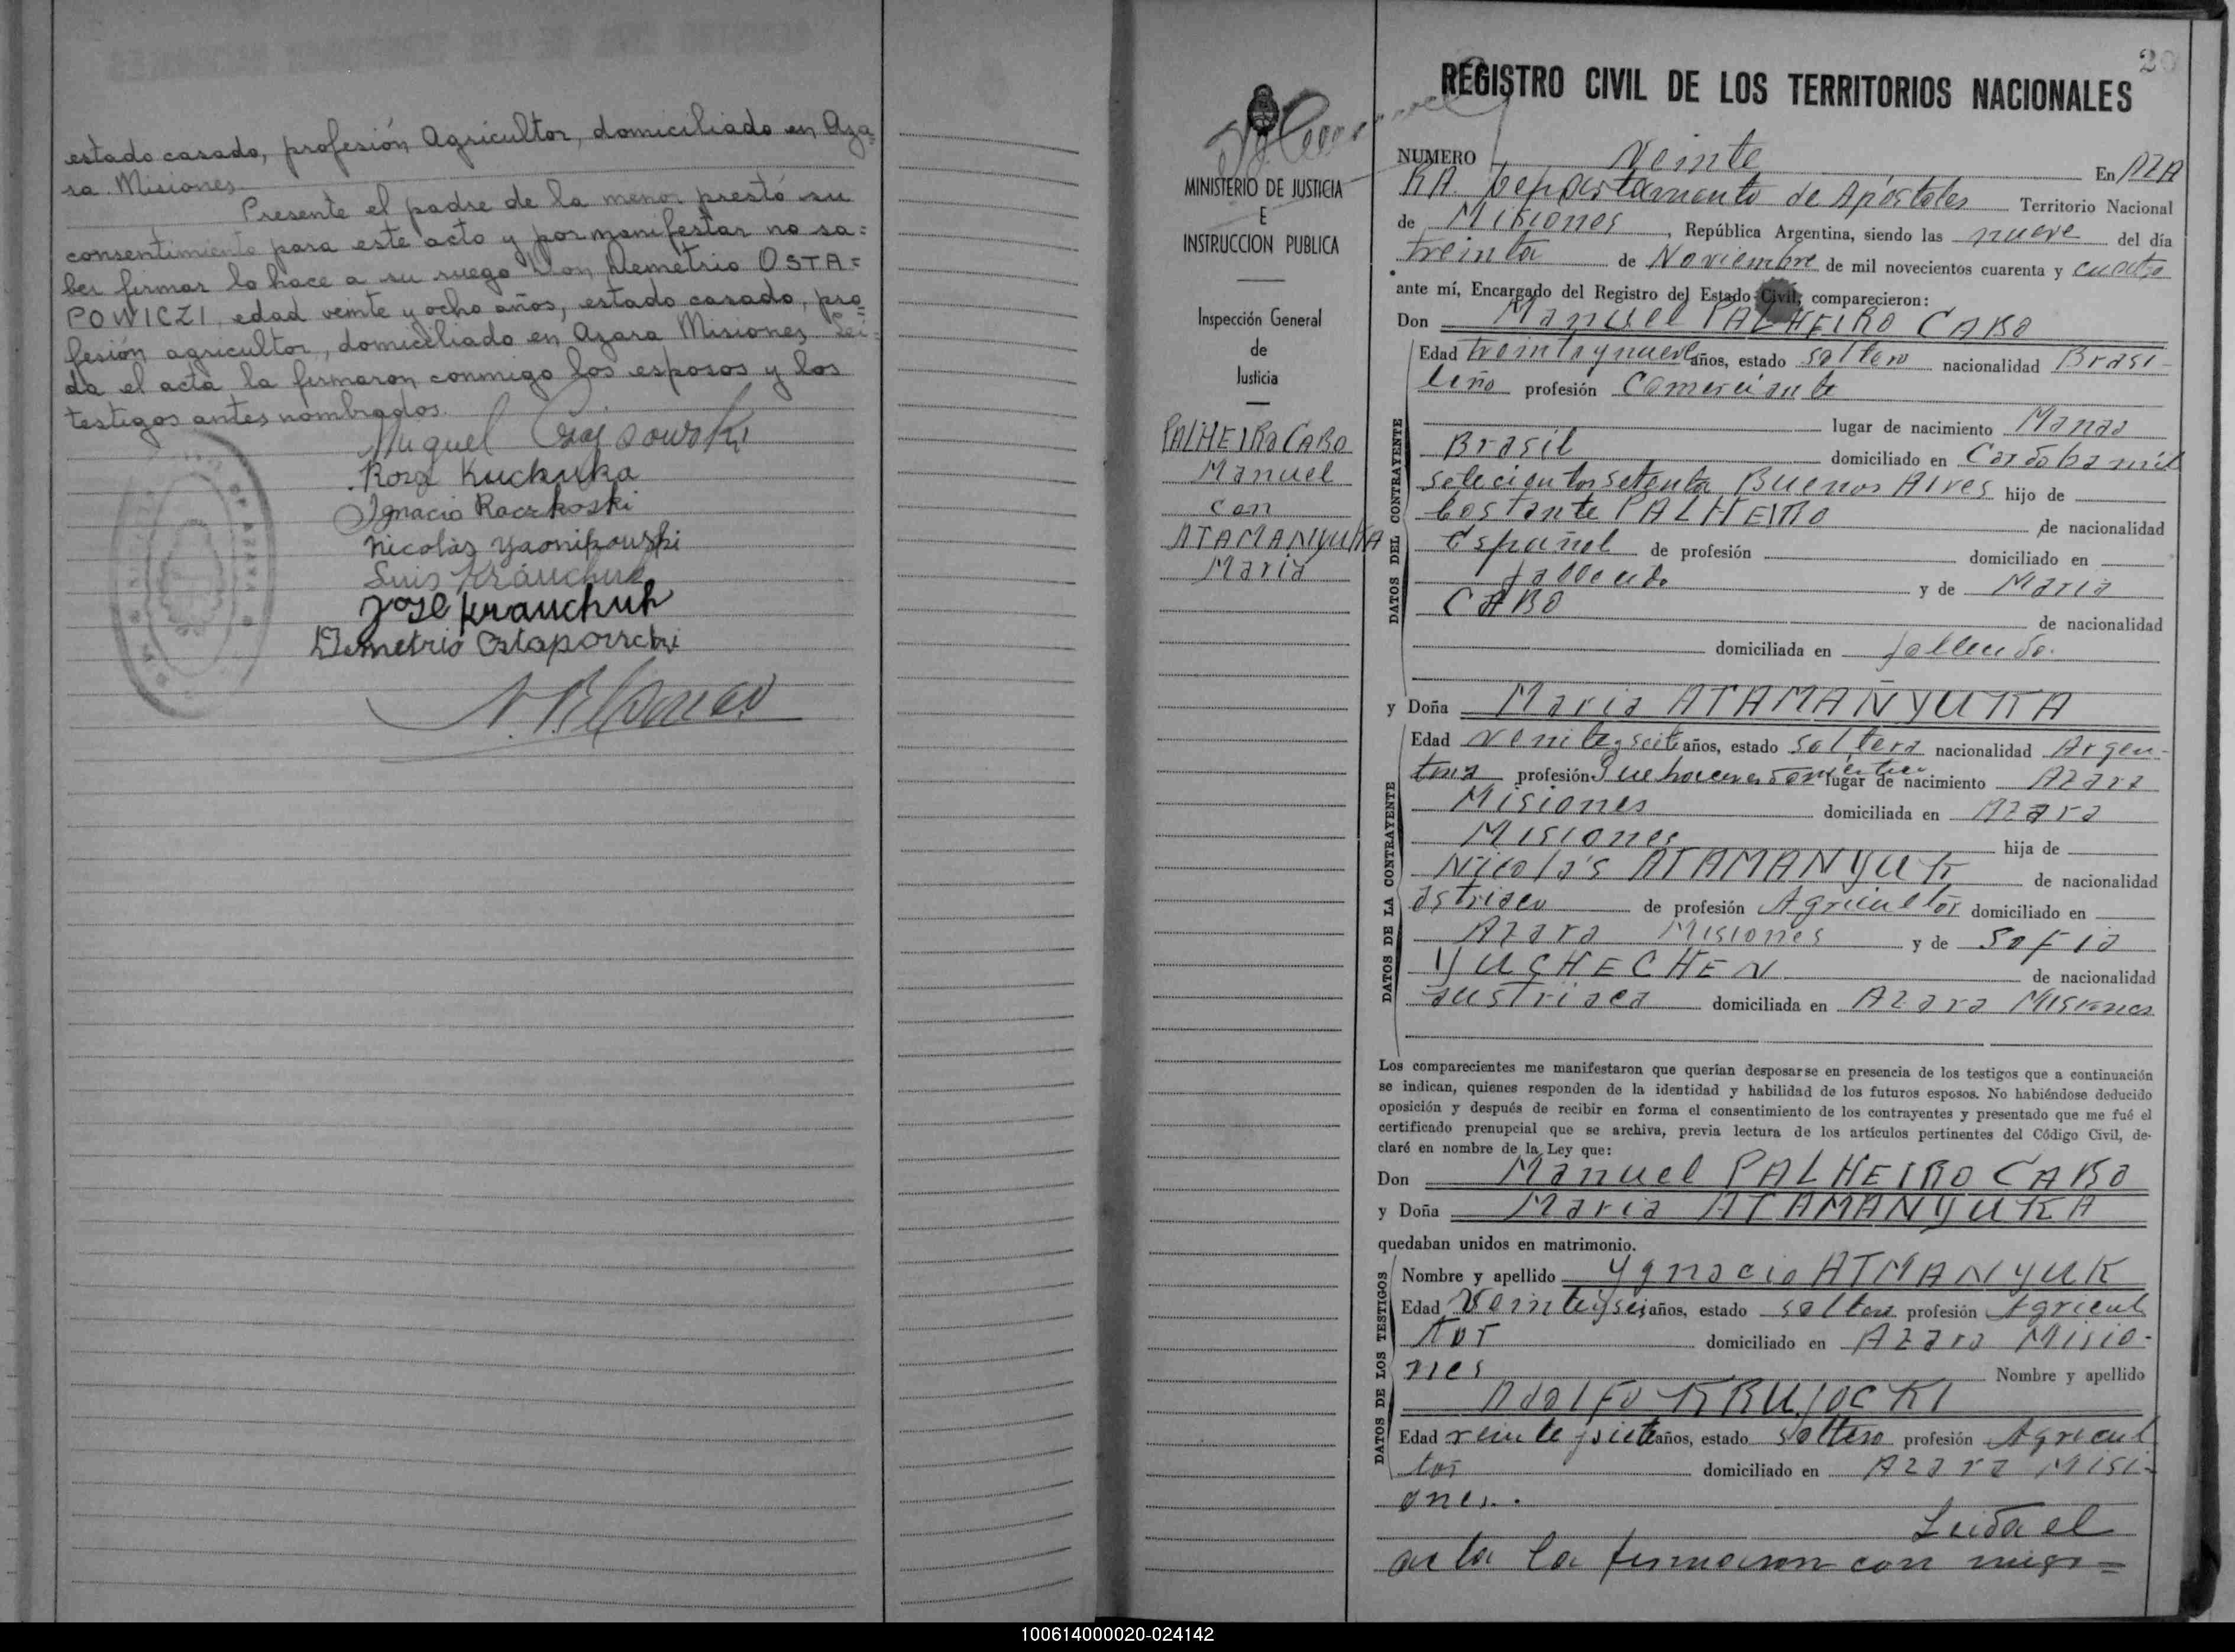 estado casado, profesión Agricultor, domiciliado en Aza=
ra Misiones
Presente el padre de la menor prestó su
consentimiento para este acto y por manifestar no sa=
ber firmar lo hace a su ruego Don Demetrio OSTA=
POWICZI, edad veinte y ocho años, estado casado, pro=
fesión agricultor, domiciliado en Azara Misiones Lei=
da el acta la firmaron conmigo los esposos y los
testigos antes nombrados.
Miguel
Rosa Kuchuka
Ignacio Raczkoski
Nicolás
Luis Krauchuk
José Krauchuk
Demetrio
20
REGISTRO CIVIL DE LOS TERRITORIOS NACIONALES
MINISTERIO DE JUSTICIA
E
INSTRUCCION PUBLICA
Inspección General
de
Justicia
PALHEIRO CABO
Manuel
con
ATAMANYUKA
María
NUMERO Veinte En AZA
RA Departamento de Apóstoles Territorio Nacional
de Misiones, República Argentina, siendo las nueve del día
treinta de Noviembre de mil novecientos cuarenta y cuatro
ante mí, Encargado del Registro del Estado Civil, comparecieron:
Don Manuel PALHEIRO CABO
DATOS DEL CONTRAYENTE
Edad treinta y nueve años, estado soltero nacionalidad Brasi-
leño profesión Comerciante
lugar de nacimiento Manao
Brasil domiciliado en Cordoba mil
setecientos setenta Buenos Aires hijo de
Costante PALHEIRO de nacionalidad
Español de profesión domiciliado en
fallecido y de Maria
CABO de nacionalidad
domiciliada en fallecida.
y Doña Maria ATAMAÑYUKA
DATOS DE LA CONTRAYENTE
Edad veinte y seite años, estado soltera nacionalidad Argen-
tina profesión Quehaceres domésticos lugar de nacimiento Azara
Misiones domiciliada en Azara
Misiones hija de
Nicolás ATAMANYUK de nacionalidad
astriaco de profesión Agricultor domiciliado en
Azara Misiones y de Sofia
YUSHECHEN de nacionalidad
austriaca domiciliada en Azara Misiones
Los comparecientes me manifestaron que querían desposarse en presencia de los testigos que a continuación
se indican, quienes responden de la identidad y habilidad de los futuros esposos. No habiéndose deducido
oposición y después de recibir en forma el consentimiento de los contrayentes y presentado que me fué el
certificado prenupcial que se archiva, previa lectura de los artículos pertinentes del Código Civil, de-
claré en nombre de la Ley que:
Don Manuel PALHEIRO CABO
y Doña Maria ATAMANYUKA
quedaban unidos en matrimonio.
DATOS DE LOS TESTIGOS
Nombre y apellido Ygnacio ATMANYUK
Edad Veinteyseis años, estado soltero profesión Agricul
tor domiciliado en Azara Misio-
nes Nombre y apellido
Adolfo KRUJOCKI
Edad veinte y siete años, estado soltero profesión Agricul
tor domiciliado en Azara Misi-
ones.
Leida el
acta la firmaron con migo=
100614000020-024142